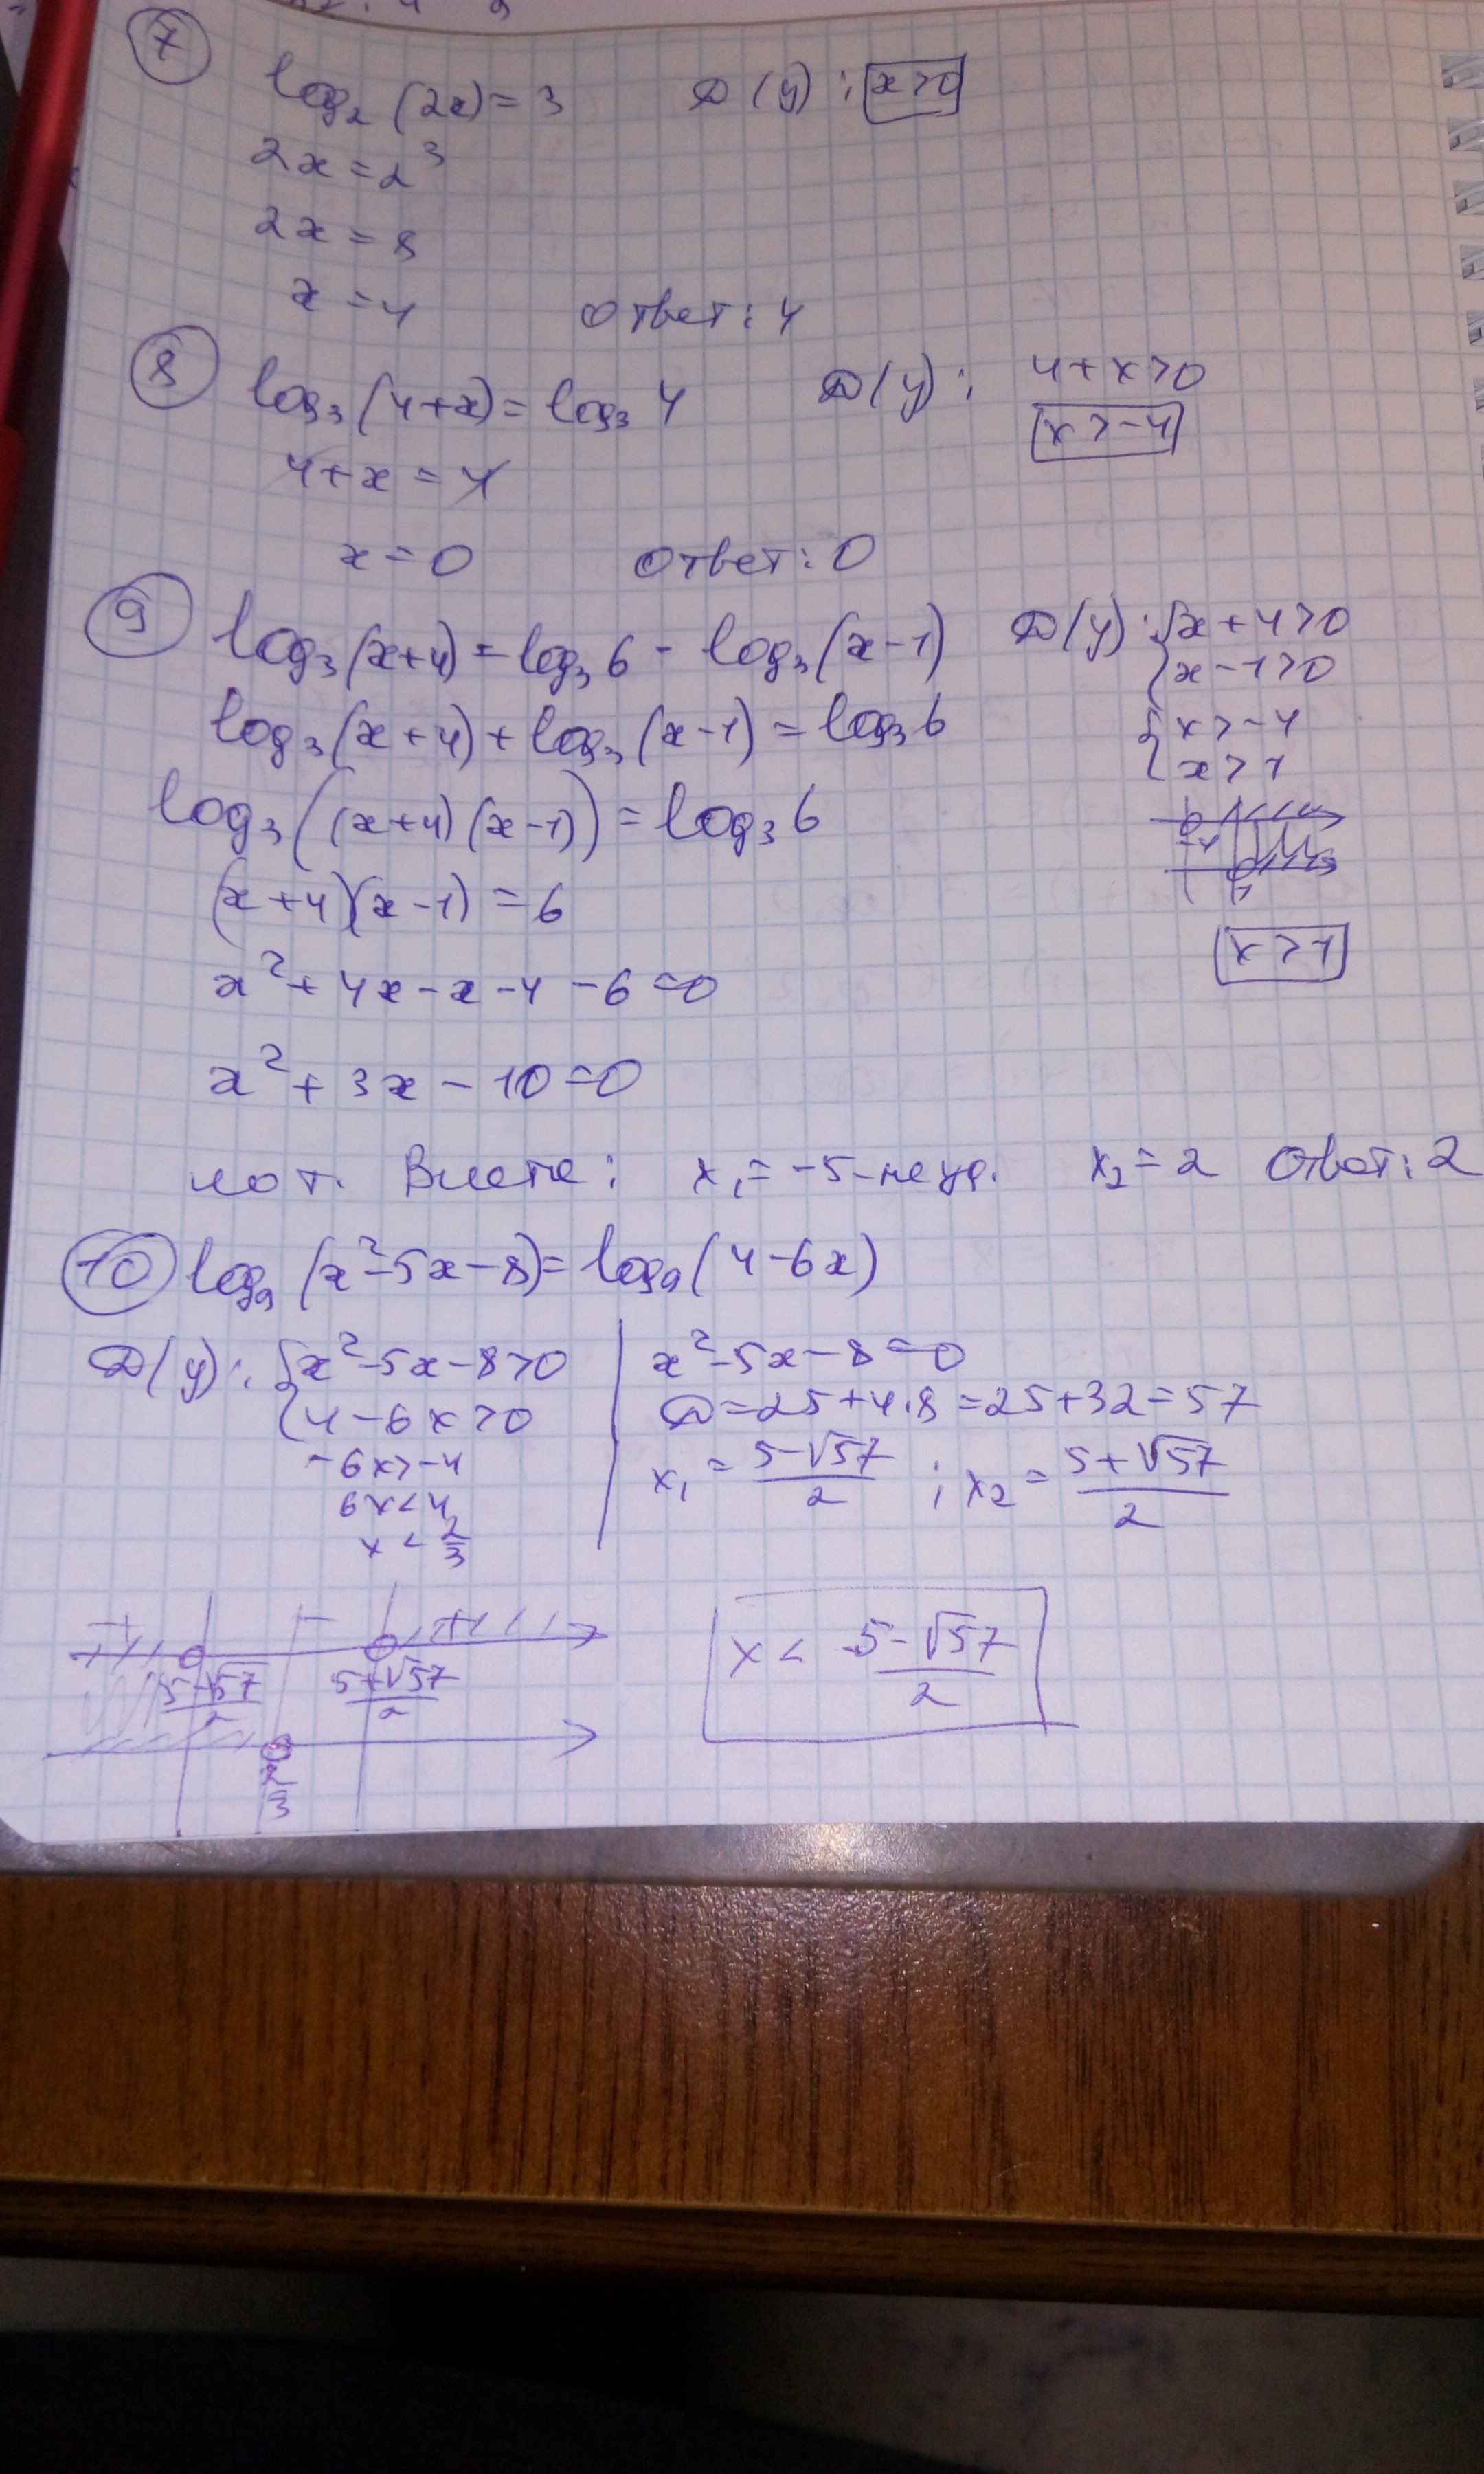 7 log₂(2x)=3 D(y): x>0
2x=2³
2x=8
x=4 Ответ: 4
8 log₃(4+x)=log₃4 D(y): 4+x>0
x>-4
4+x=4
x=0 Ответ: 0
9 log₃(x+4)=log₃6-log₃(x-1) D(y): {x+4>0
{x-1>0
log₃(x+4)+log₃(x-1)=log₃6
{x>-4
{x>1
log₃((x+4)(x-1))=log₃6
-4
1
(x+4)(x-1)=6
x>1
x²+4x-x-4-6=0
x²+3x-10=0
по т. Виета: x₁=-5-не уд. x₂=2 Ответ: 2
10 log₉(x²-5x-8)=log₉(4-6x)
D(y): {x²-5x-8>0
{4-6x>0
-6x>-4
6x<4
x<2/3
x²-5x-8=0
D=25+4.8=25+32=57
x₁=(5-√57)/2 ; x₂=(5+√57)/2
+ - +
(5-√57)/2 (5+√57)/2
2/3
x<(5-√57)/2